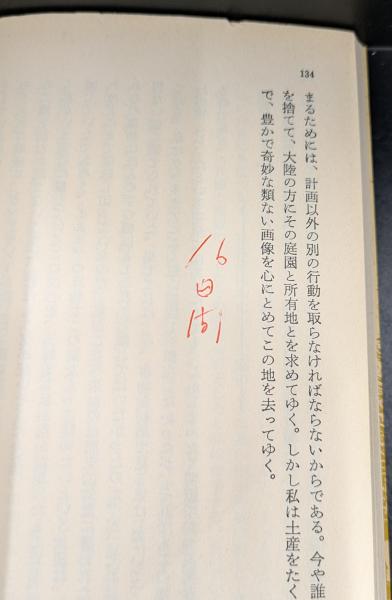 134
まるためには、計画以外の別の行動を取らなければならないからである。今や誰
を捨てて、大陸の方にその庭園と所有地とを求めてゆく。しかし私は土産をたく
で、豊かで奇妙な類ない画像を心にとめてこの地を去ってゆく。
16